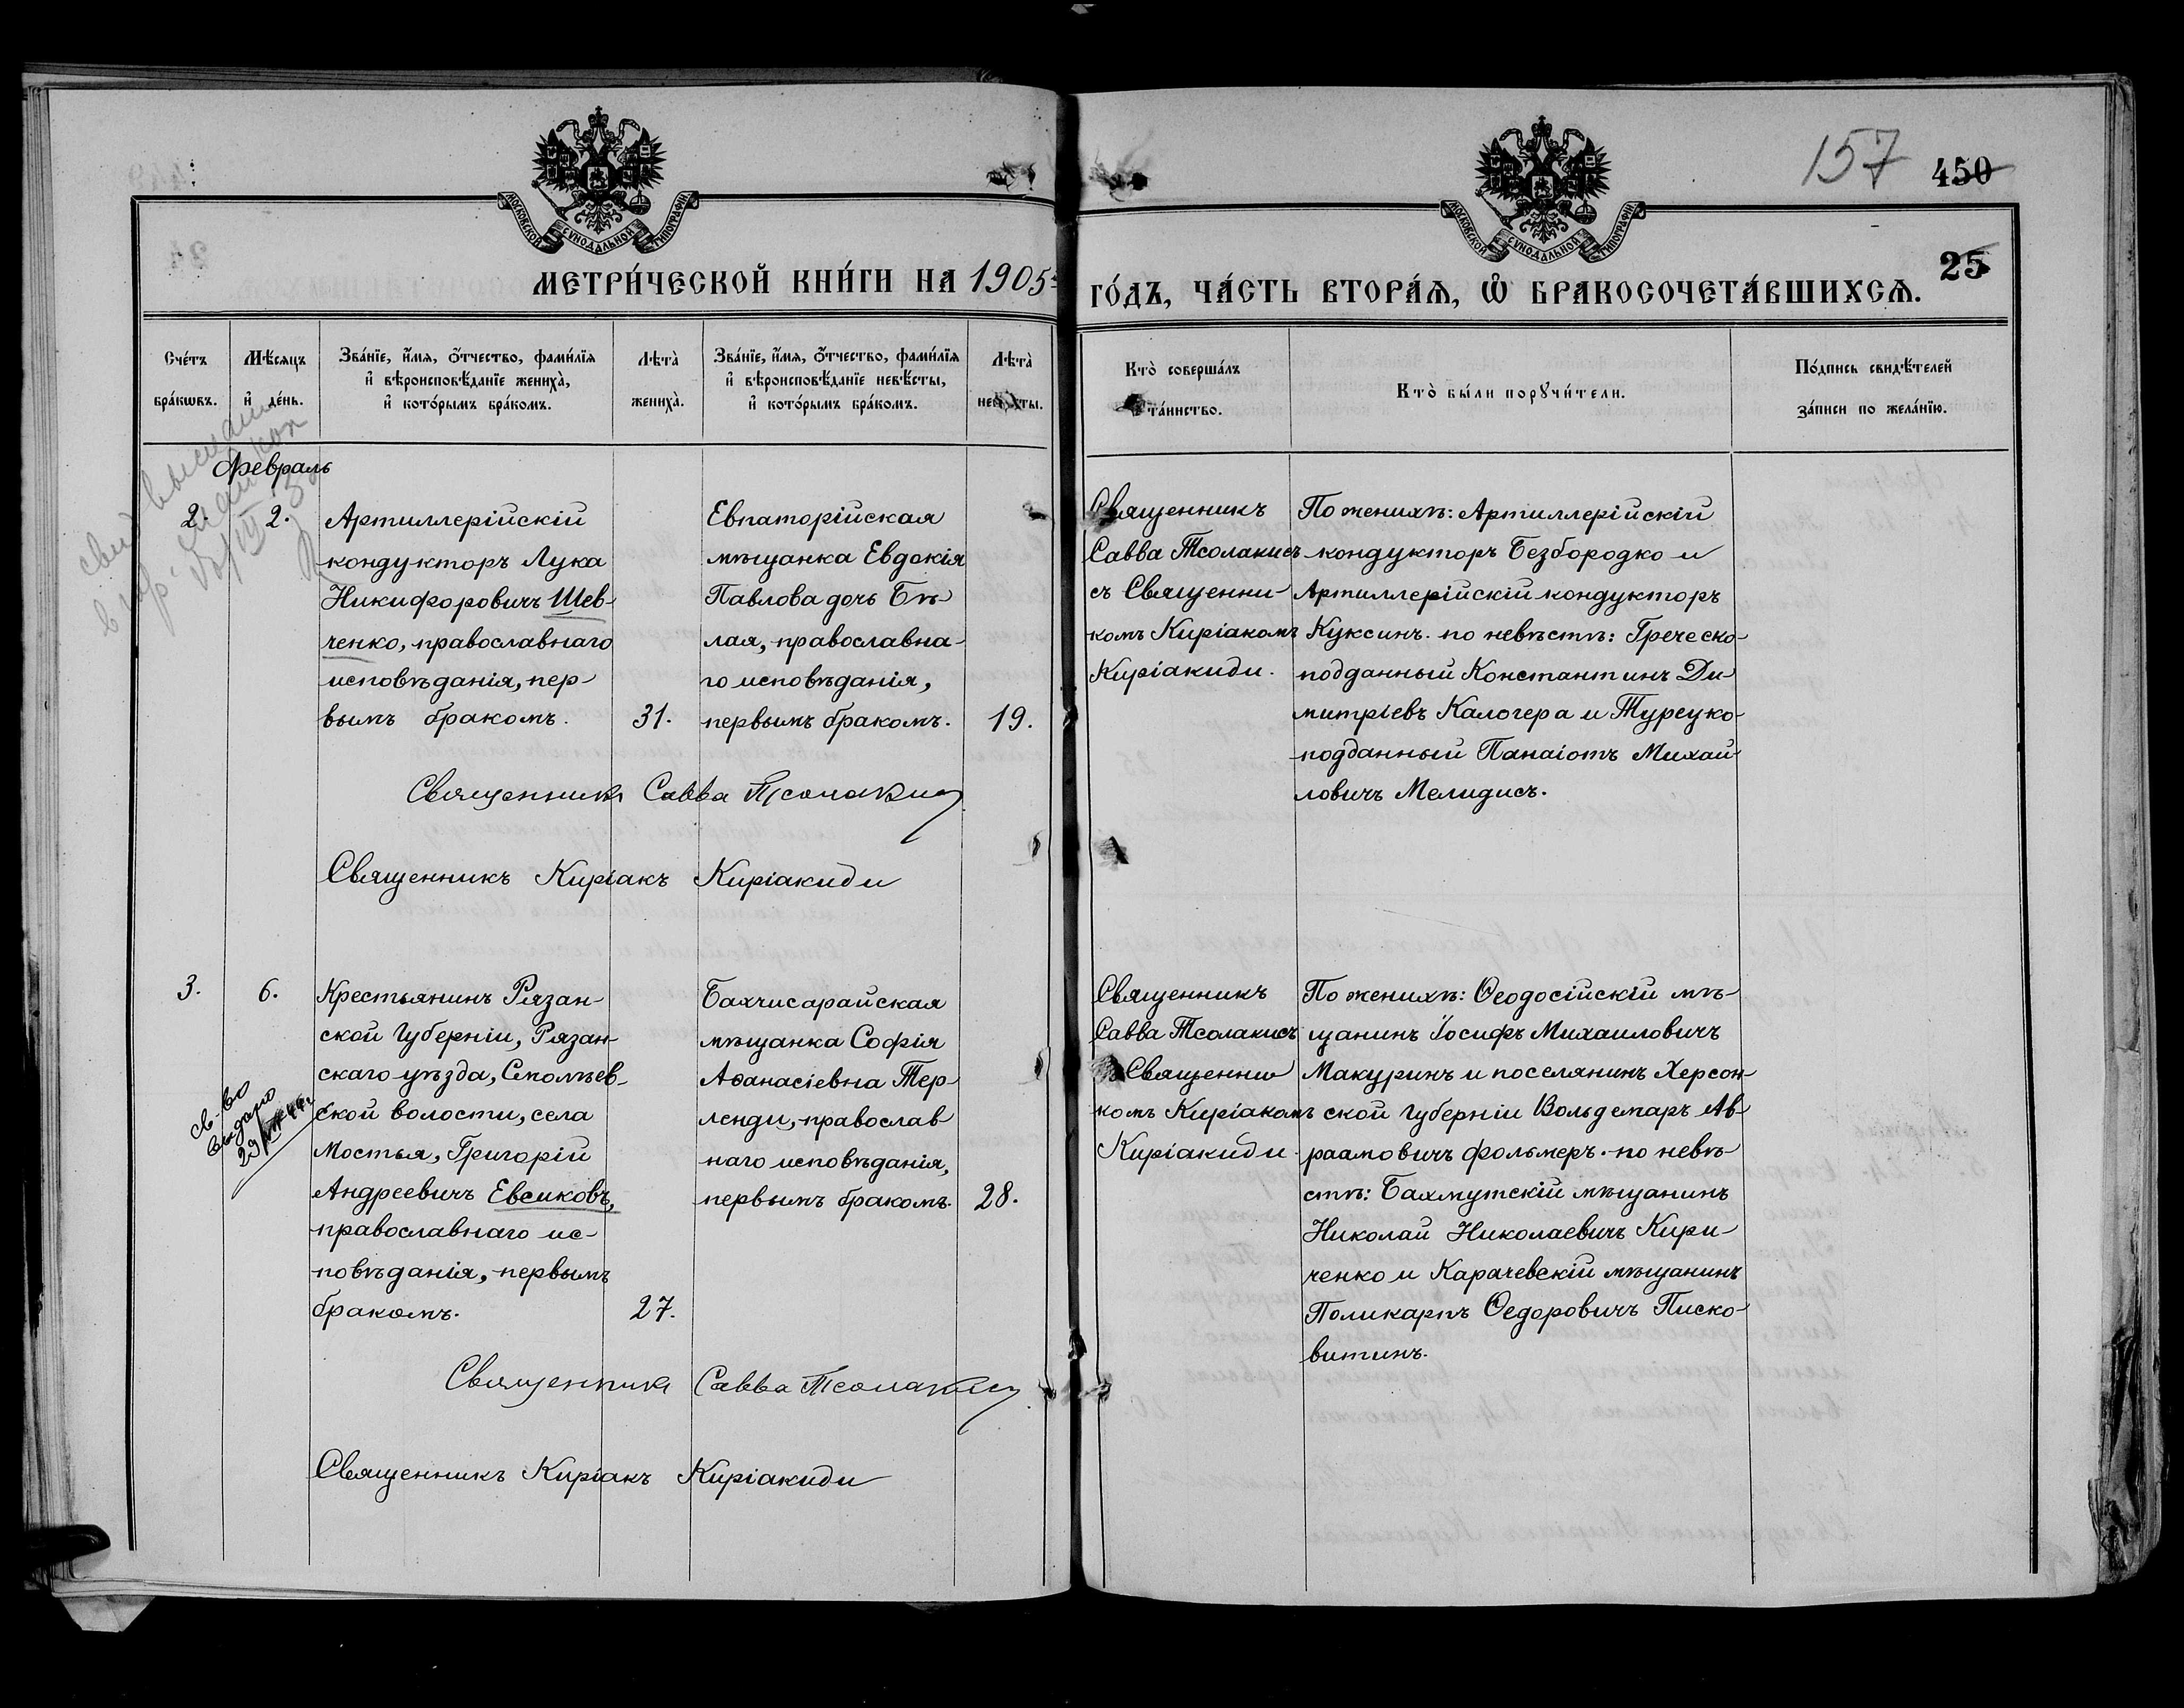 157 450
МОСКОВСКОЙ СѴНОДАЛЬНОЙ ТИПОГРАФІИ
МОСКОВСКОЙ СѴНОДАЛЬНОЙ ТИПОГРАФІИ
25
МЕТРИ́ЧЕСКОЙ КНИ́ГИ НА 1905
ГО́ДЪ, ЧА́СТЬ ВТОРА́Ѧ, Ѡ҆ БРАКОСОЧЕТА́ВШИХСѦ.
Сче́тъ бра́кѡвъ.
Мѣ́сѧцъ и҆ де́нь.
Зва́нїе, и҆́мѧ, ѻ҆́тчество, фами́лїѧ
и҆ вѣроисповѣ́данїе женихà,
и҆ кото́рымъ бра́комъ.
Лѣтà женихà.
Зва́нїе, и҆́мѧ, ѻ҆́тчество, фами́лїѧ
и҆ вѣроисповѣ́данїе невѣ́сты,
и҆ кото́рымъ бра́комъ.
Лѣтà
Ктò соверша́лъ та́инство.
Ктò бы́ли порꙋчи́тели.
По́дпись свидѣ́телей
за́писи по жела́нїю.
Февраль
2.
2.
Артиллерійскій
кондукторъ Лука
Никифоровичъ Шев-
ченко, православнаго
исповѣданія, пер-
вымъ бракомъ.
31.
Евпаторійская
мѣщанка Евдокія
Павлова дочь Бѣ-
лая, православна-
го исповѣданія,
первымъ бракомъ.
19.
Священникъ
Савва Тсолакисъ
съ Священни-
комъ Киріакомъ
Киріакиди.
По женихѣ: Артиллерійскій
кондукторъ Безбородко и
Артиллерійскій кондукторъ
Куксинъ. по невѣстѣ: Греческо-
подданный Константинъ Ди-
митріевъ Калогера и Турецко-
подданный Панаіотъ Михай-
ловичъ Мелидисъ.
Священникъ Савва Тсолакисъ
Священникъ Киріакъ Киріакиди
3.
6.
св-во
выдано
Крестьянинъ Рязан-
ской Губерніи, Рязан-
скаго уѣзда,
ской волости, села
Мостья, Григорій
Андреевичъ Евсиковъ,
православнаго ис-
повѣданія, первымъ
бракомъ.
27.
Бахчисарайская
мѣщанка Софія
Аѳанасіевна Тер-
ленди, православ
наго исповѣданія,
первымъ бракомъ.
28.
Священникъ
Савва Тсолакисъ
Священни-
комъ Киріакомъ
Киріакиди.
По женихѣ: Ѳеодосійскій мѣ-
щанинъ Іосифъ Михаиловичъ
Макуринъ и поселянинъ Херсон-
ской Губерніи Вольдемаръ Ав-
раамовичъ Фольмеръ. по невѣ-
стѣ: Бахмутскій мѣщанинъ
Николай Николаевичъ Кири-
ченко и Карачевскій мѣщанинъ
Поликарпъ Ѳедоровичъ Писко-
витинъ.
Священникъ Савва Тсолакисъ
Священникъ Киріакъ Киріакиди